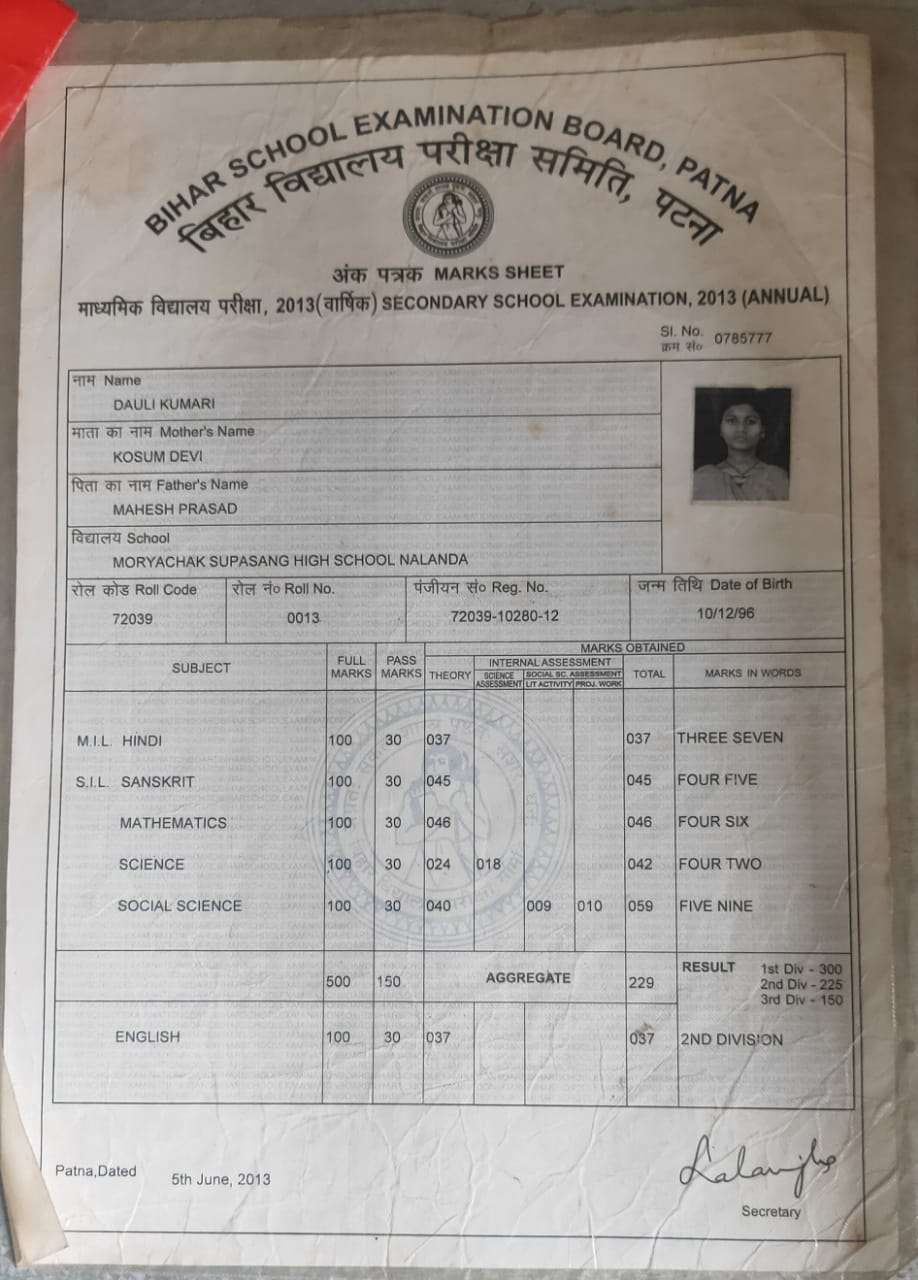 BIHAR SCHOOL EXAMINATION BOARD, PATNA
बिहार विद्यालय परीक्षा समिति, पटना
अंक पत्रक MARKS SHEET
माध्यमिक विद्यालय परीक्षा, 2013(वार्षिक) SECONDARY SCHOOL EXAMINATION, 2013 (ANNUAL)
Sl. No. क्रम सं० 0785777
नाम Name
DAULI KUMARI
माता का नाम Mother's Name
KOSUM DEVI
पिता का नाम Father's Name
MAHESH PRASAD
विद्यालय School
MORYACHAK SUPASANG HIGH SCHOOL NALANDA
रोल कोड Roll Code रोल नं० Roll No. पंजीयन सं० Reg. No. जन्म तिथि Date of Birth
72039 0013 72039-10280-12 10/12/96
MARKS OBTAINED
SUBJECT FULL MARKS PASS MARKS THEORY INTERNAL ASSESSMENT TOTAL MARKS IN WORDS
SCIENCE ASSESSMENT SOCIAL SC. ASSESSMENT
LIT ACTIVITY PROJ. WORK
M.I.L. HINDI 100 30 037 037 THREE SEVEN
S.I.L. SANSKRIT 100 30 045 045 FOUR FIVE
MATHEMATICS 100 30 046 046 FOUR SIX
SCIENCE 100 30 024 018 042 FOUR TWO
SOCIAL SCIENCE 100 30 040 009 010 059 FIVE NINE
500 150 AGGREGATE 229 RESULT 1st Div - 300
2nd Div - 225
3rd Div - 150
ENGLISH 100 30 037 037 2ND DIVISION
Patna,Dated 5th June, 2013
Secretary